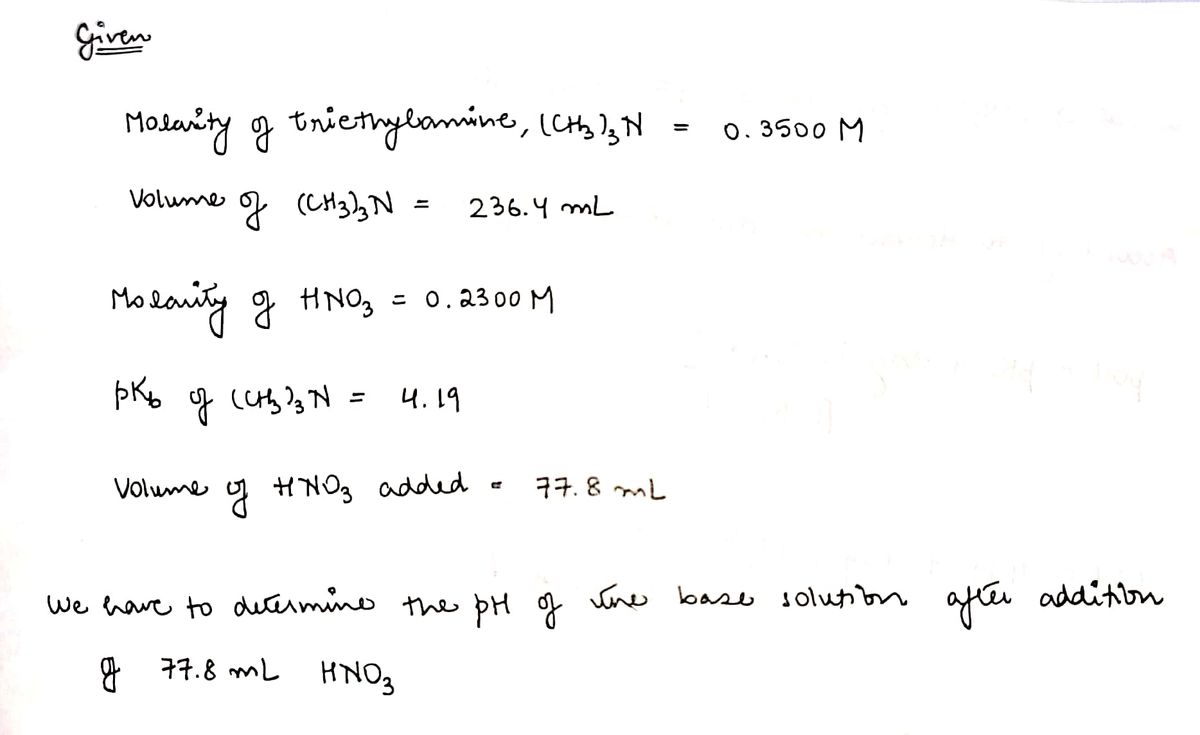 Given
Molarity of triethylamine, (CH3)3N = 0.3500 M
Volume of (CH3)3N = 236.4 mL
Molarity of HNO3 = 0.2300 M
pKb of (CH3)3N = 4.19
Volume of HNO3 added = 77.8 mL
We have to determine the pH of the base solution after addition
of 77.8 mL HNO3